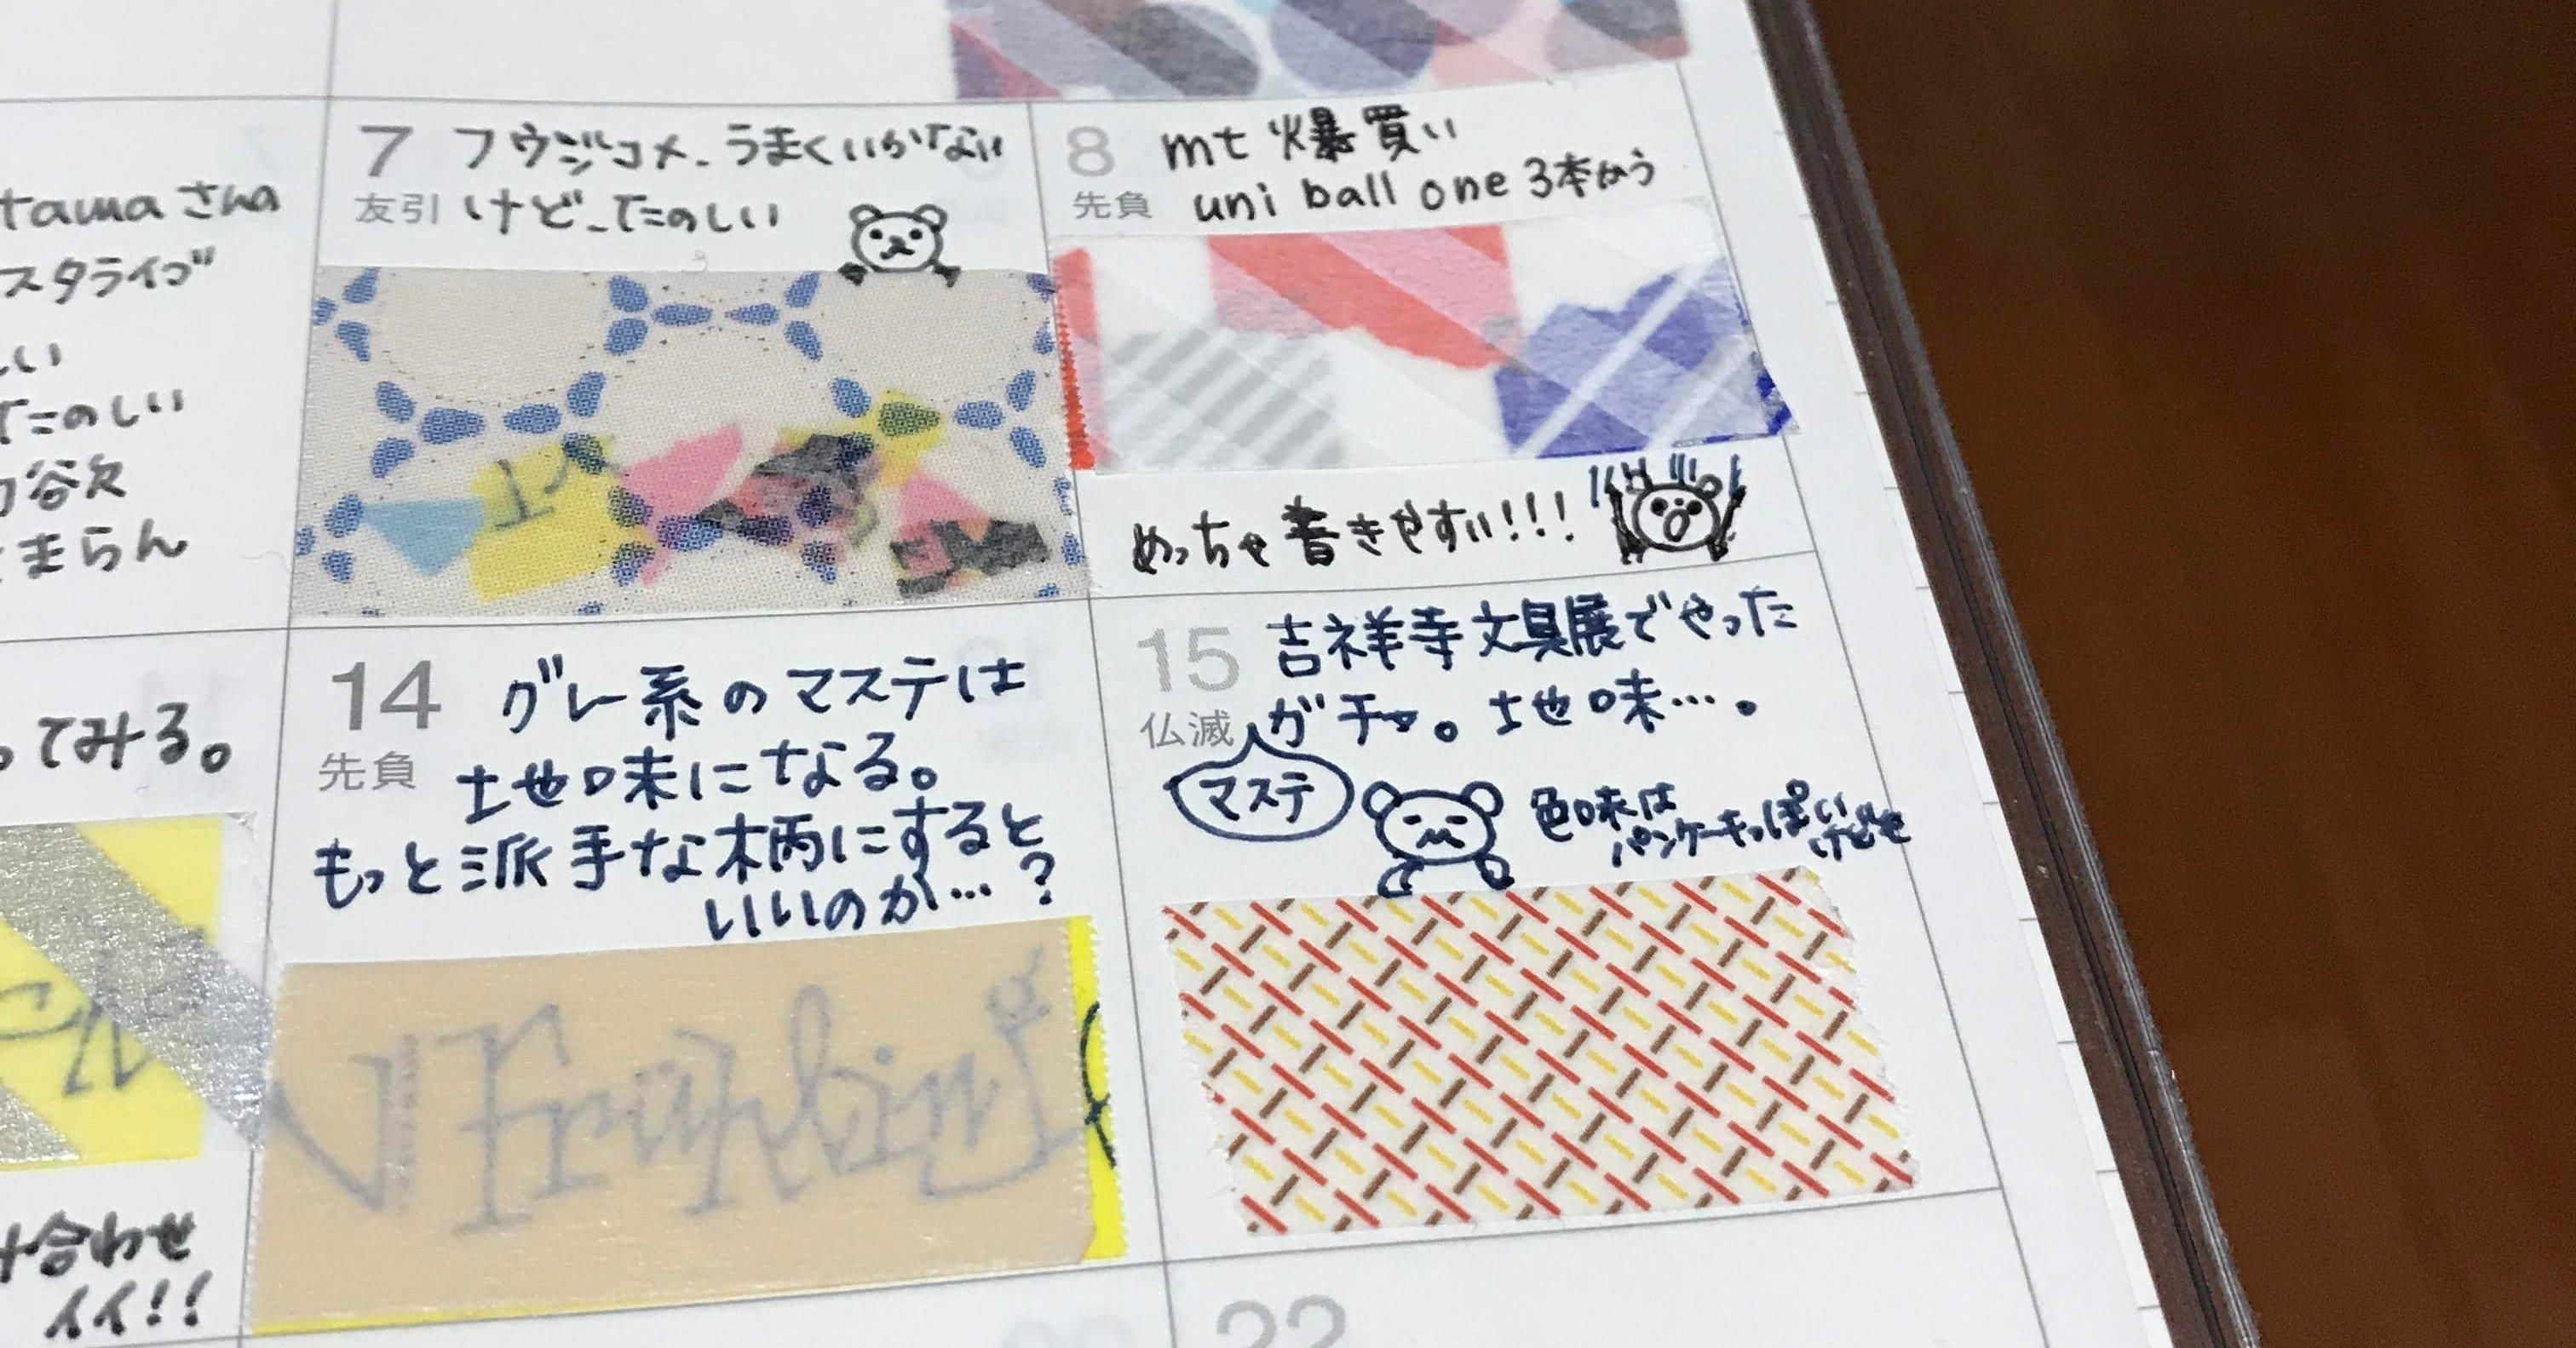 tamaさんの
スタライブ
しい
たのしい
まらん
7
友引
フウジコメ、うまくいかない
けど、たのしい
8
先負
mt 爆買い
uni ball one 3本かう
めっちゃ書きやすい!!!
ってみる。
合わせ
イイ!!
14
先負
グレー系のマステは
地味になる。
もっと派手な柄にすると
いいのか…?
15
仏滅
吉祥寺文具展でやった
ガチャ。地味…。
マステ
色味は
パンケーキっぽい
けども
22